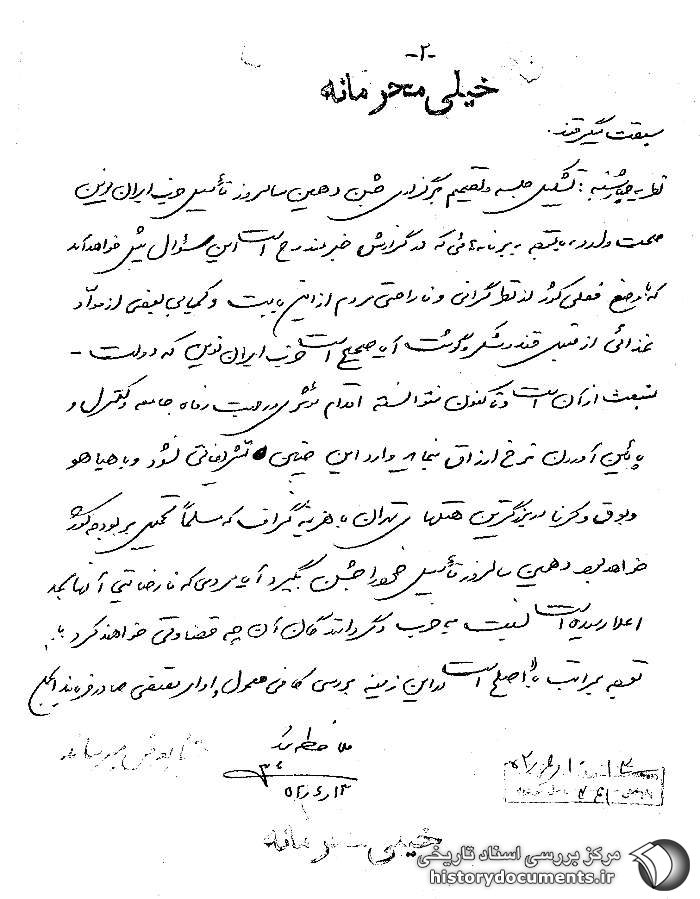 -۲-
خیلی محرمانه
سبقت میگرفتند.
نظریه چهارشنبه: تشکیل جلسه و تصمیم برگزاری جشن دهمین سالروز تأسیس حزب ایران نوین
صحت دارد، با توجه به برنامه‌هائی که در گزارش خبر مندرج است این سئوال پیش خواهد آمد
که با وضع فعلی کشور از نظر گرانی و ناراحتی مردم از این بابت و کمیابی بعضی از مواد
غذائی از قبیل قند و شکر و گوشت آیا صحیح است حزب ایران نوین که دولت -
منبعث از آن است و تاکنون نتوانسته اقدام مؤثری در جهت رفاه جامعه و کنترل و
پائین آوردن نرخ ارزاق بنماید وارد این چنین تشریفاتی بشود و با هیاهو
و بوق و کرنا در بزرگترین هتلهای تهران با هزینه گزاف که مسلماً تحمیل بر بودجه کشور
خواهد بود دهمین سالروز تأسیس خود را جشن بگیرد آیا مردمی که نارضایتی آنها بحد
اعلا رسیده است نسبت به حزب و گردانندگان آن چه قضاوتی خواهند کرد
توجه بمراتب بالا اصلح است در این زمینه بررسی کافی معمول و اوامر مقتضی صادر فرمایند
ملاحظه شد
بعرض میرساند
خیلی محرمانه
مرکز بررسی اسناد تاریخی
historydocuments.ir